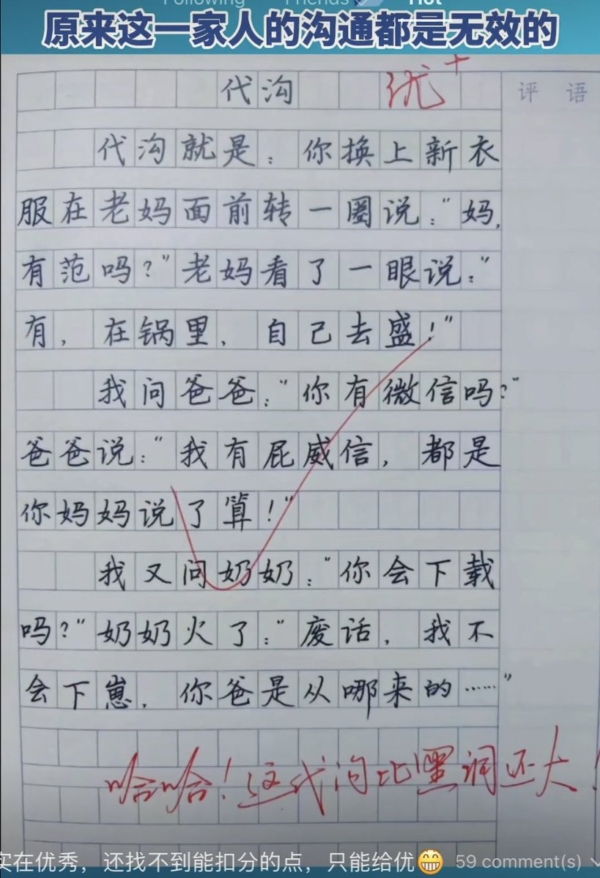 Following
Friends
Hot
原来这一家人的沟通都是无效的
代沟
优+
评语
代沟就是：你换上新衣
服在老妈面前转一圈说："妈，
有范吗？"老妈看了一眼说："
有，在锅里，自己去盛！"
我问爸爸："你有微信吗？"
爸爸说："我有屁威信，都是
你妈妈说了算！"
我又问奶奶："你会下载
吗？"奶奶火了："废话，我不
会下崽，你爸是从哪来的……"
哈哈！这代沟比黑洞还大！
实在优秀，还找不到能扣分的点，只能给优😁 59 comment(s)